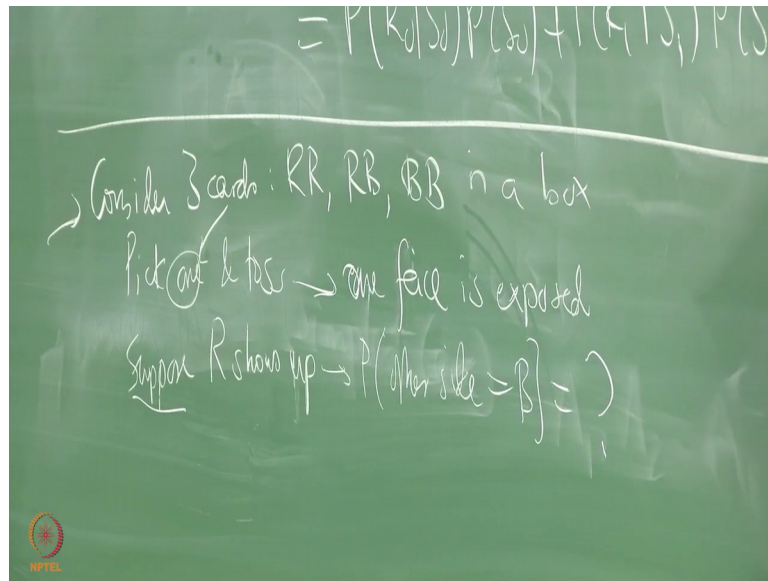 = P(R0|S0)P(S0) + P(R1|S1) P(S
→ Consider 3 cards: RR, RB, BB in a box
Pick one & toss → one face is exposed
Suppose R shows up → P(other side = B) = ?
NPTEL